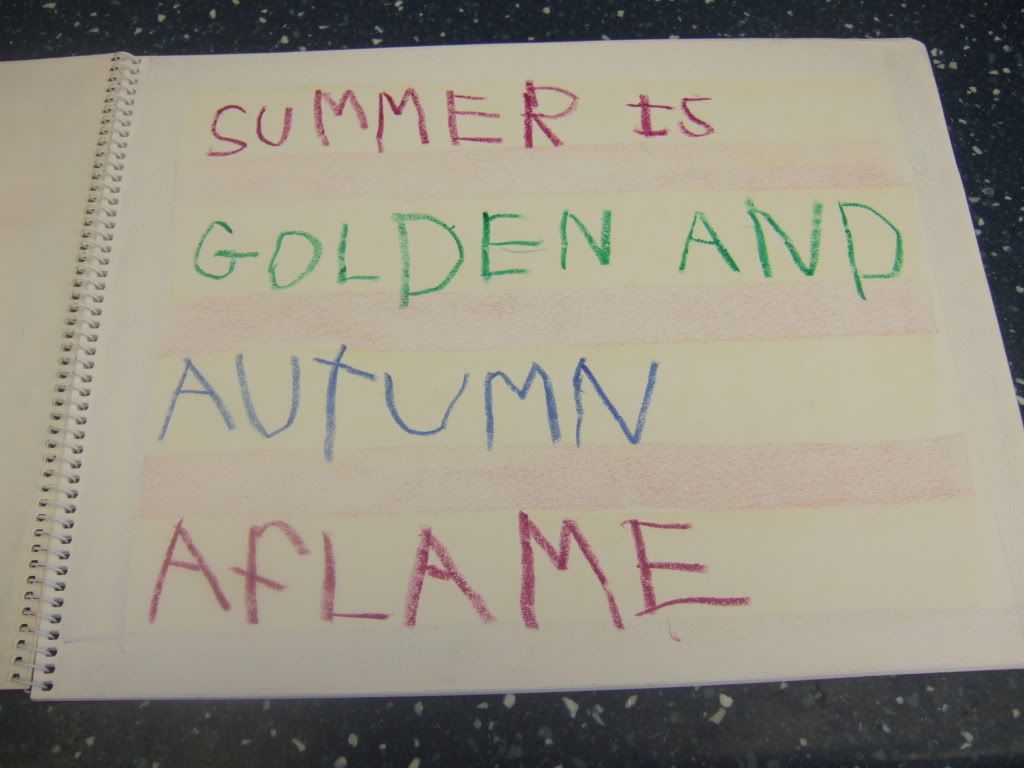 SUMMER IS
GOLDEN AND
AUTUMN
AfLAME